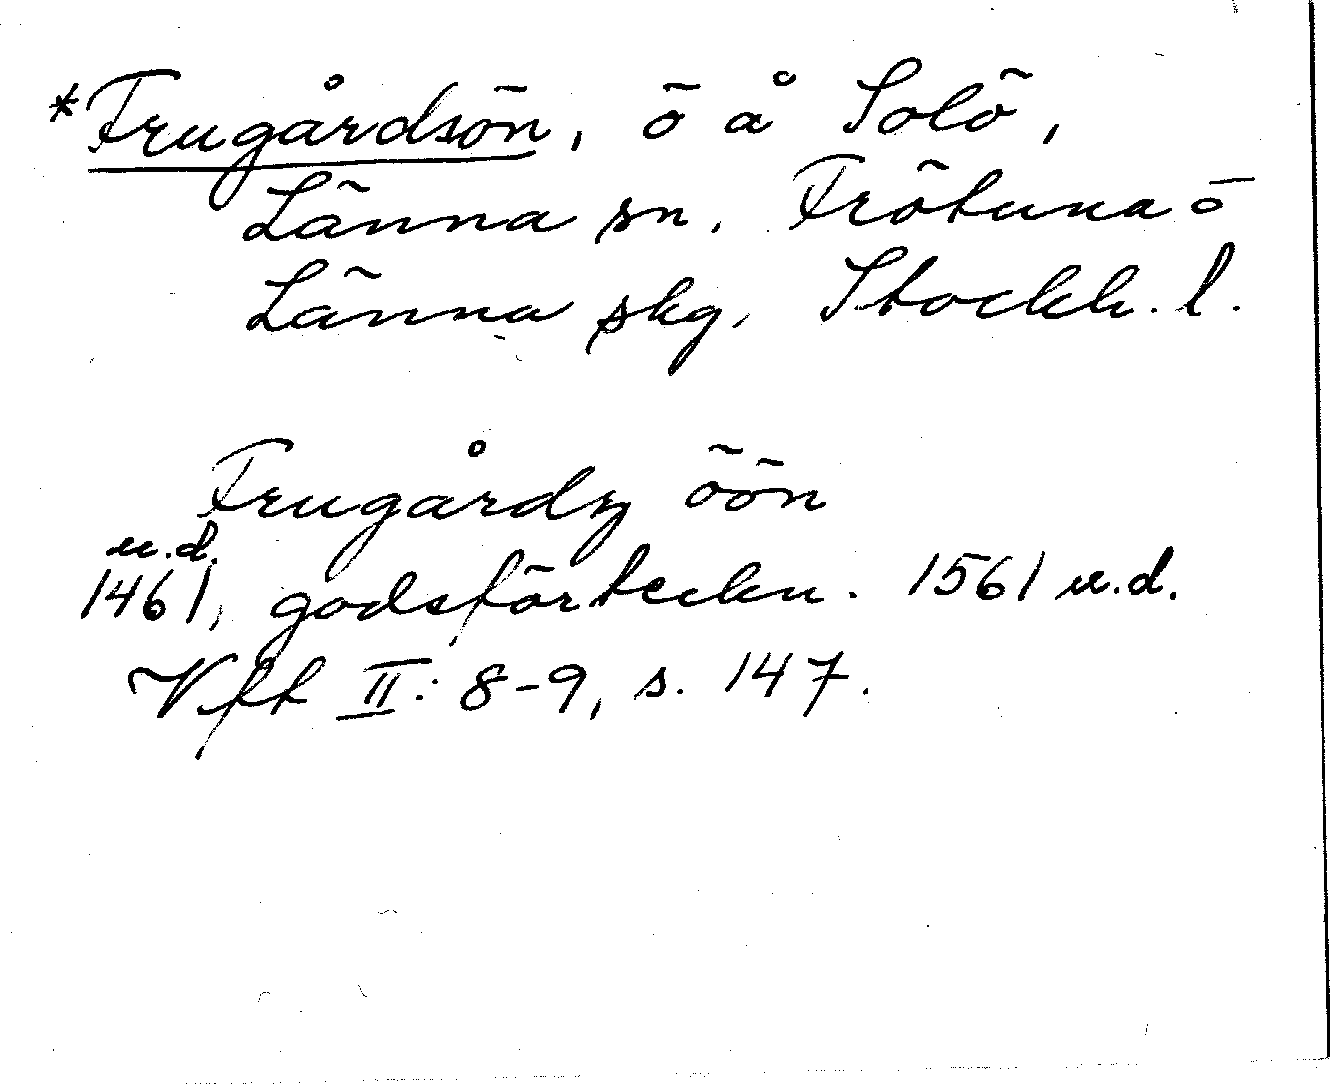 *Frugårdsön, ö å Solö,
Länna sn, Frötuna o
Länna skg, Stockh. l.
Frugårdz öön
u.d.
1461, godsförteckn. 1561 u.d.
Vfft II: 8-9, s. 147.